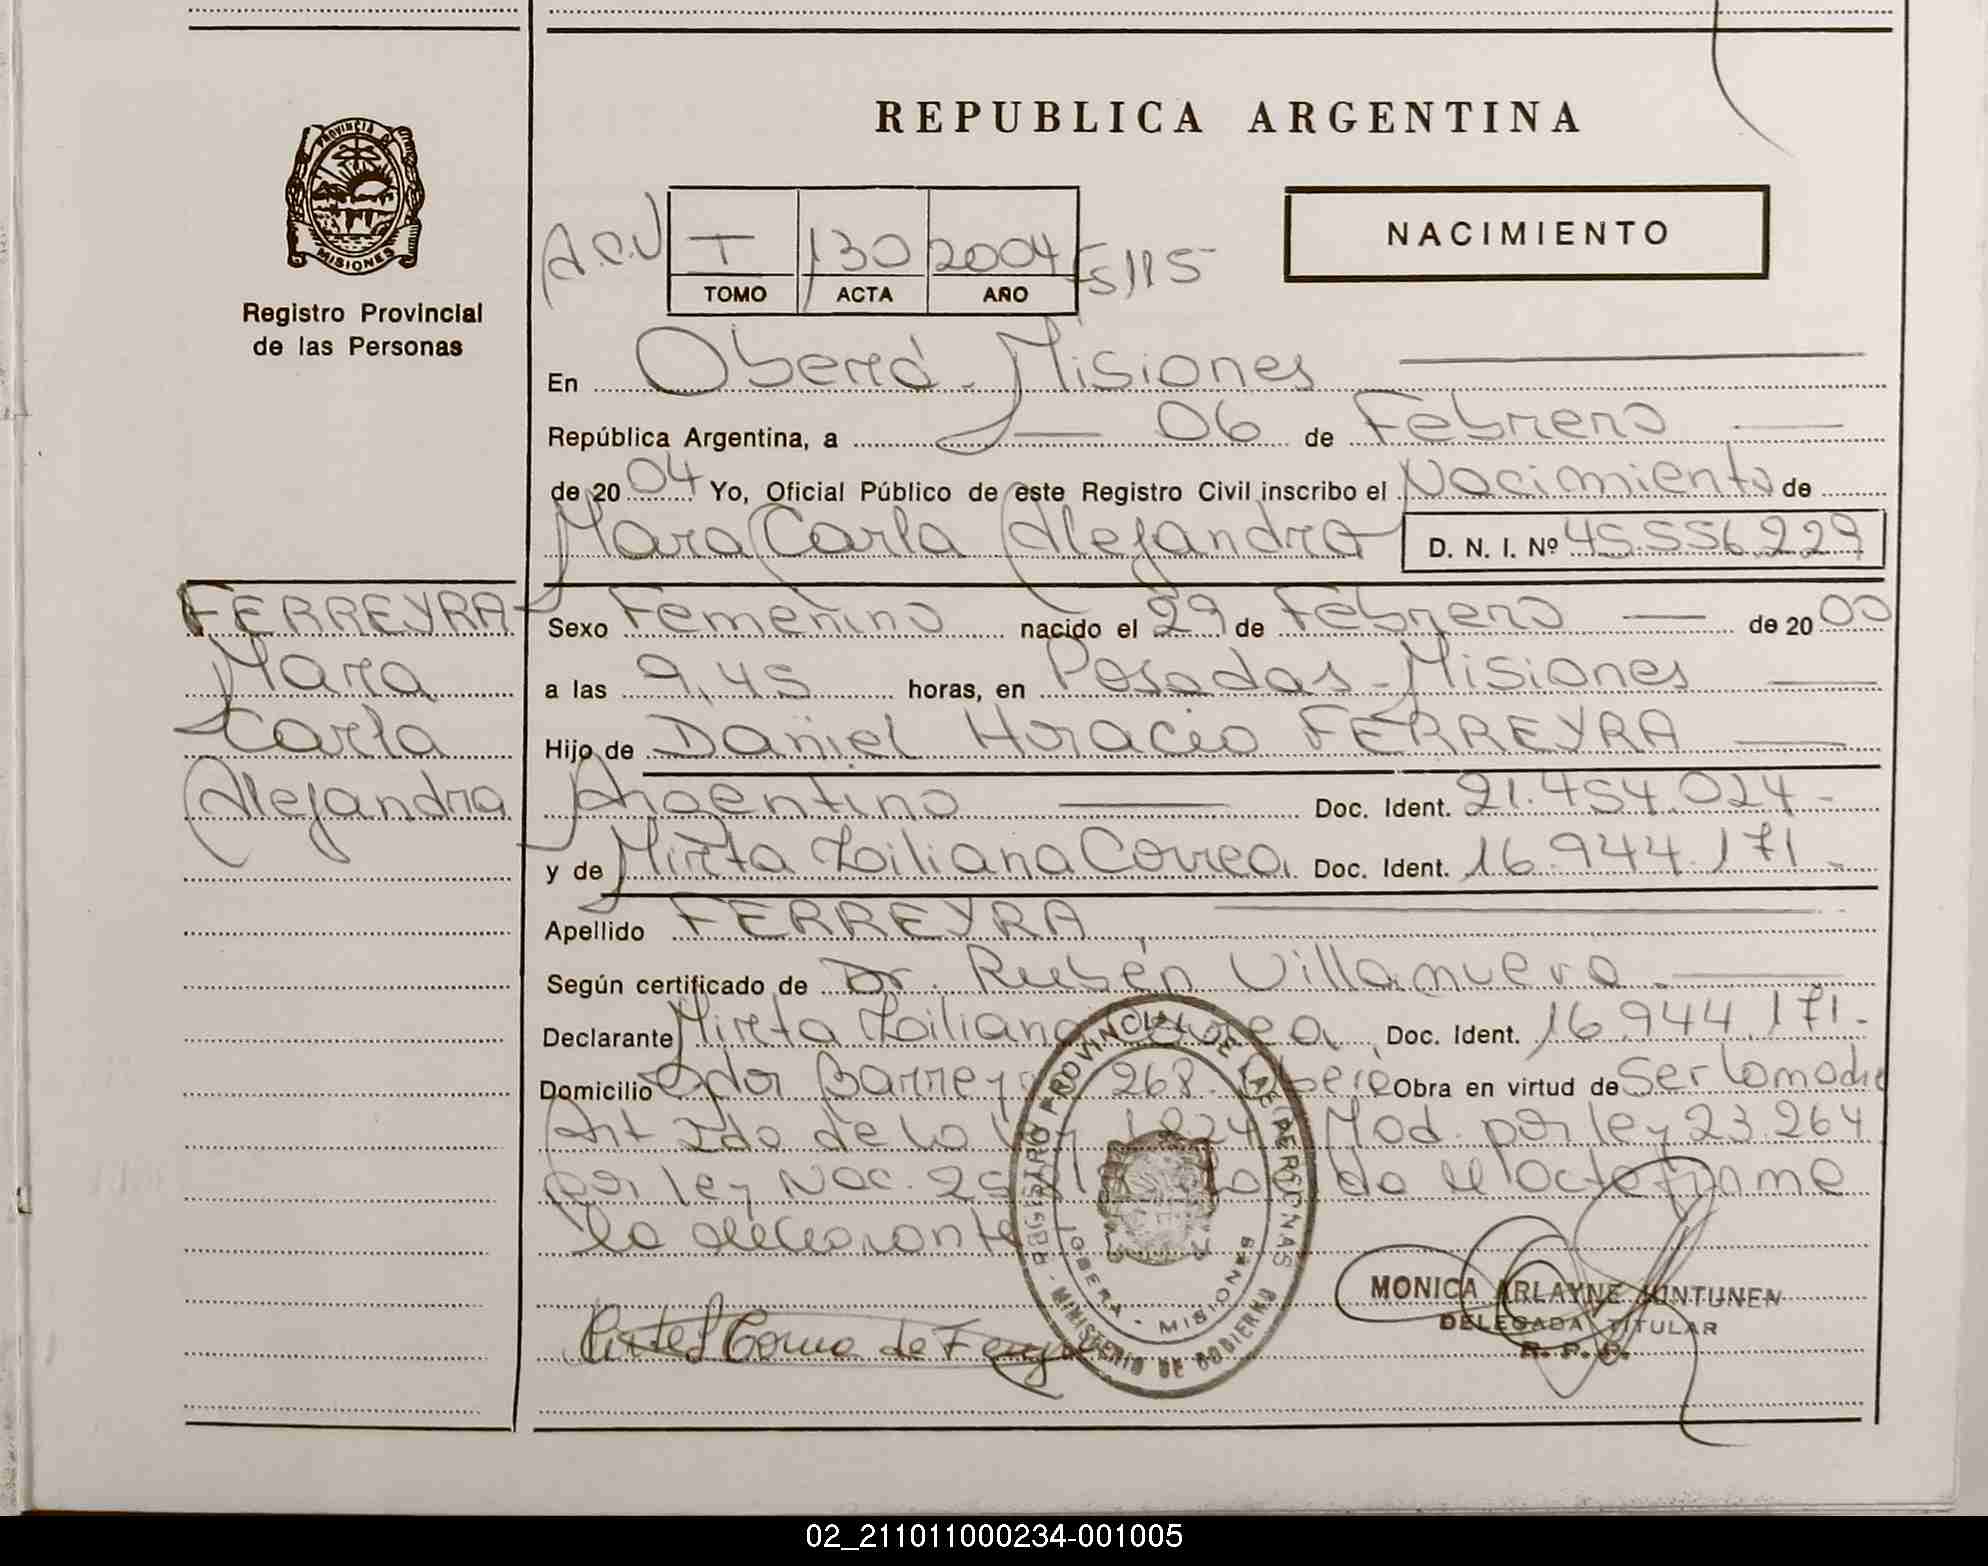 REPUBLICA ARGENTINA
PROVINCIA DE
MISIONES
Registro Provincial
de las Personas
NACIMIENTO
T 130 2004
TOMO ACTA AÑO
En Oberá - Misiones
República Argentina, a 06 de Febrero
de 2004 Yo, Oficial Público de este Registro Civil inscribo el Nacimiento de
Mara Carla Alejandra D. N. I. Nº 45.556.229
FERREYRA
Mara
Carla
Alejandra
Sexo Femenino nacido el 29 de Febrero de 2000
a las 9,45 horas, en Posadas - Misiones
Hijo de Daniel Horacio FERREYRA
Argentino Doc. Ident. 21.454.024-
y de Mirta Liliana Correa Doc. Ident. 16.944.171-
Apellido FERREYRA
Según certificado de Dr. Rubén Villanueva.
Declarante Mirta Liliana Correa Doc. Ident. 16.944.171-
Domicilio Barreyro 268. Oberá Obra en virtud de Ser la madre
Art 2do de la Ley Mod. por ley 23.264
por ley Nac. el acta firma
la declarante
REGISTRO PROVINCIAL DE LAS PERSONAS
MINISTERIO DE GOBIERNO
OBERA - MISIONES
MONICA ARLAYNE JUNTUNEN
DELEGADA TITULAR
R. P. P.
02_211011000234-001005